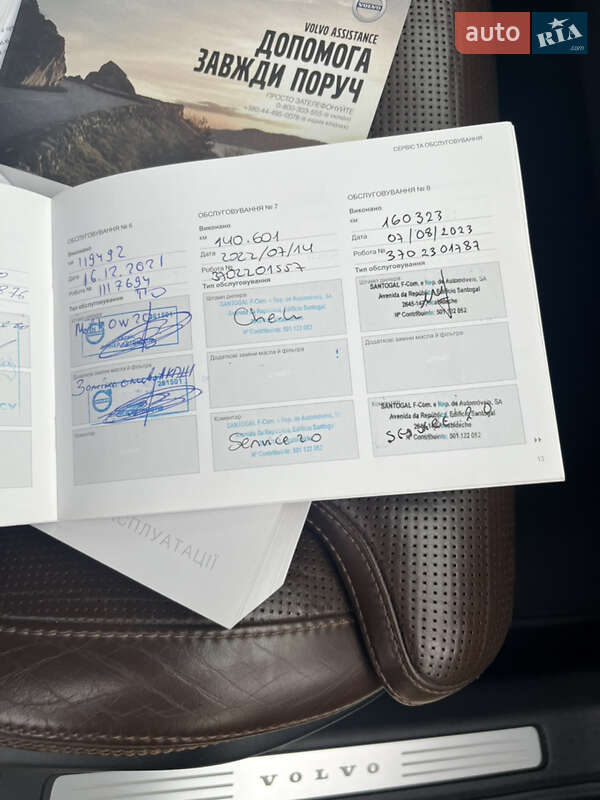 VOLVO
VOLVO ASSISTANCE
ДОПОМОГА
ЗАВЖДИ ПОРУЧ
ПРОСТО ЗАТЕЛЕФОНУЙТЕ
auto RIA.com
СЕРВІС ТА ОБСЛУГОВУВАННЯ
ОБСЛУГОВУВАННЯ № 6
Виконано
км 119492
Дата 16.12.2021
Робота № 1117694
Тип обслуговування ТО
Штамп дилера
0W20
381501
Додаткові заміни масла й фільтра
381501
Коментар
ОБСЛУГОВУВАННЯ № 7
Виконано
км 140.601
Дата 2022/07/14
Робота № 3702201557
Тип обслуговування
Штамп дилера
SANTOGAL F-Com. e Rep. de Automóveis, SA
Avenida da República, Edifício Santogal
Nº Contribuinte: 501 122 052
Додаткові заміни масла й фільтра
Коментар
SANTOGAL F-Com. e Rep. de Automóveis, SA
Avenida da República, Edifício Santogal
Service 2.0
Nº Contribuinte: 501 122 052
ОБСЛУГОВУВАННЯ № 8
Виконано
км 160323
Дата 07/08/2023
Робота № 370.2301787
Тип обслуговування
Штамп дилера
SANTOGAL F-Com. e Rep. de Automóveis, SA
Avenida da República, Edifício Santogal
Nº Contribuinte: 501 122 052
Додаткові заміни масла й фільтра
Коментар
SANTOGAL F-Com. e Rep. de Automóveis, SA
Avenida da República, Edifício Santogal
Nº Contribuinte: 501 122 052
13
VOLVO